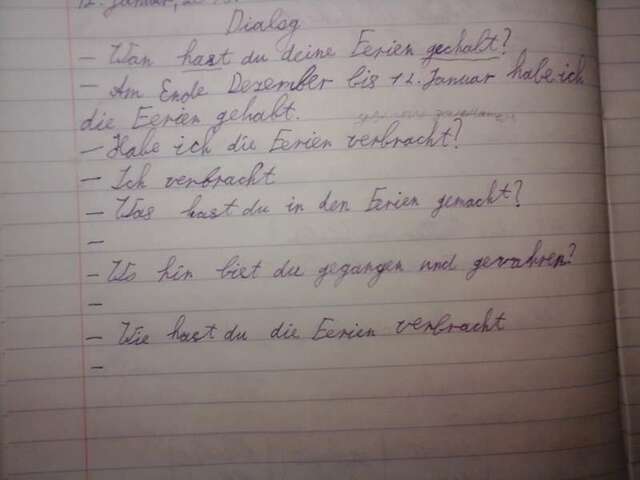 12. Januar,
Dialog
- Wan hast du deine Ferien gehabt?
- Am Ende Dezember bis 12. Januar habe ich
die Ferien gehabt.
- Habe ich die Ferien verbracht?
- Ich verbracht
- Was hast du in den Ferien gemacht?
-
- Wo hin bist du gegangen und gewahren?
-
- Wie hast du die Ferien verbracht
-